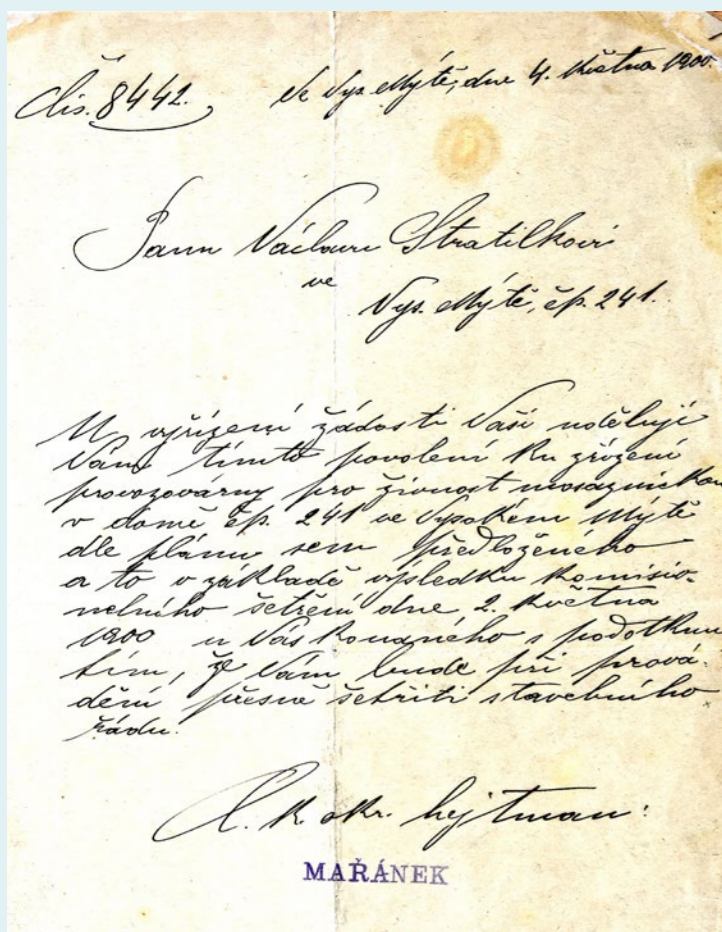 Čís. 8442.
Ve Vys. Mýtě, dne 4. května 1900.
Panu Václavu Stratílkovi
ve
Vys. Mýtě, čp. 241.
U vyřízení žádosti Vaší uděluji
Vám tímto povolení ku zřízení
provozovárny pro živnost mosaznickou
v domě čp. 241 ve Vysokém Mýtě
dle plánu sem předloženého
a to v základě výsledku komisio-
nelního šetření dne 2. května
1900 u Vás konaného s podotknu
tím, že Vám bude při prová-
dění přesně šetřiti stavebního
řádu.
C. k. okr. hejtman:
MAŘÁNEK